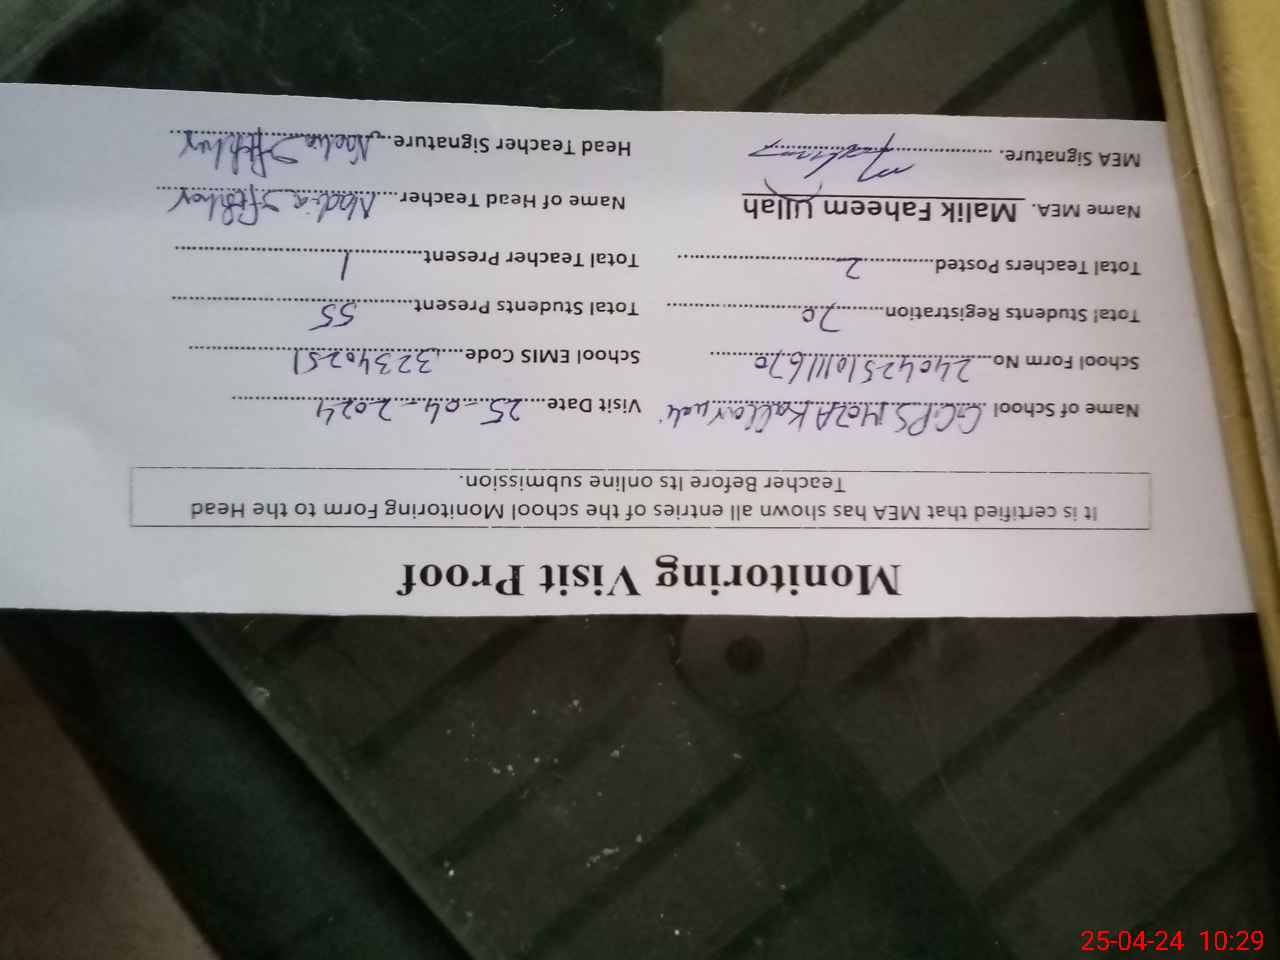 Monitoring Visit Proof
It is certified that MEA has shown all entries of the school Monitoring Form to the Head
Teacher Before Its online submission.
Name of School GGPS Moza Kallarwali Visit Date 25-04-2024
School Form No 240425101111670 School EMIS Code 32340251
Total Students Registration 70 Total Students Present 55
Total Teachers Posted 2 Total Teacher Present 1
Name MEA. Malik Faheem Ullah Name of Head Teacher Nadia Iftkhar
MEA Signature. Head Teacher Signature Nadia Iftkhar
25-04-24 10:29